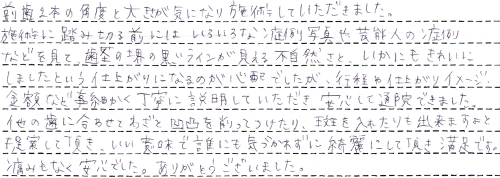 前歯2本の角度と大きさが気になり施術していただきました。
施術に踏み切る前にはいろいろな症例写真や芸能人の症例
などを見て、歯茎の境の黒いラインが見える不自然さと、いかにもきれいに
しましたという仕上がりになるのが心配でしたが、行程や仕上がりイメージ、
金額など事細かく丁寧に説明していただき安心して通院できました。
他の歯に合わせてわざと凹凸を削ってつけたり、斑を入れたりも出来ますよと
提案して頂き、いい意味で誰にも気づかれずに綺麗にして頂き満足です。
痛みもなく安心でした。ありがとうございました。